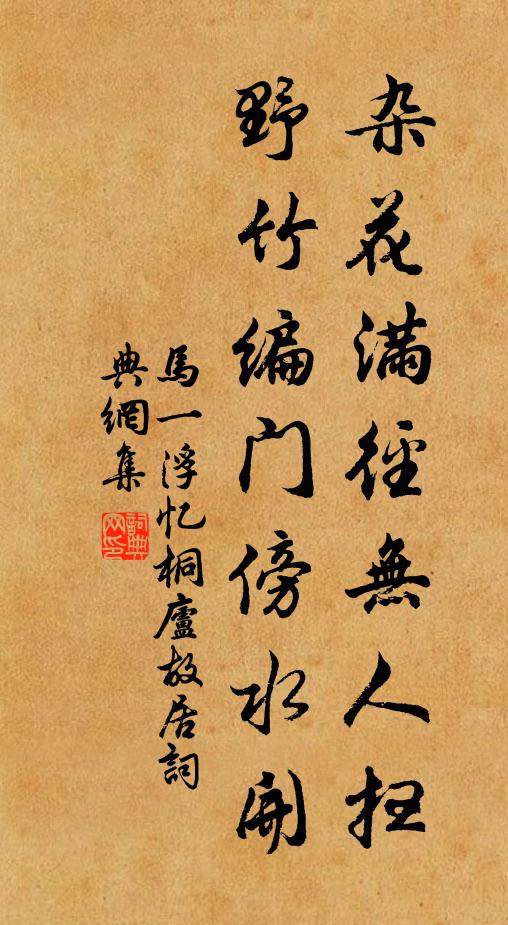 杂花满徑無人扫
野竹编门傍水開
馬一浮忆桐廬故居詞
典網集
詞典网印